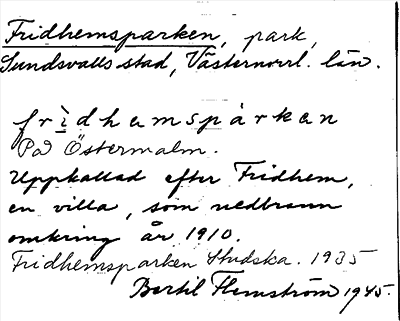 Fridhemsparken, park,
Sundsvalls stad, Västernorrl. län.
frìdhemspàrken
På Östermalm.
Uppkallad efter Fridhem,
en villa, som nedbrann
omkring år 1910.
Fridhemsparken Studska. 1935
Bertil Flemström 1945.